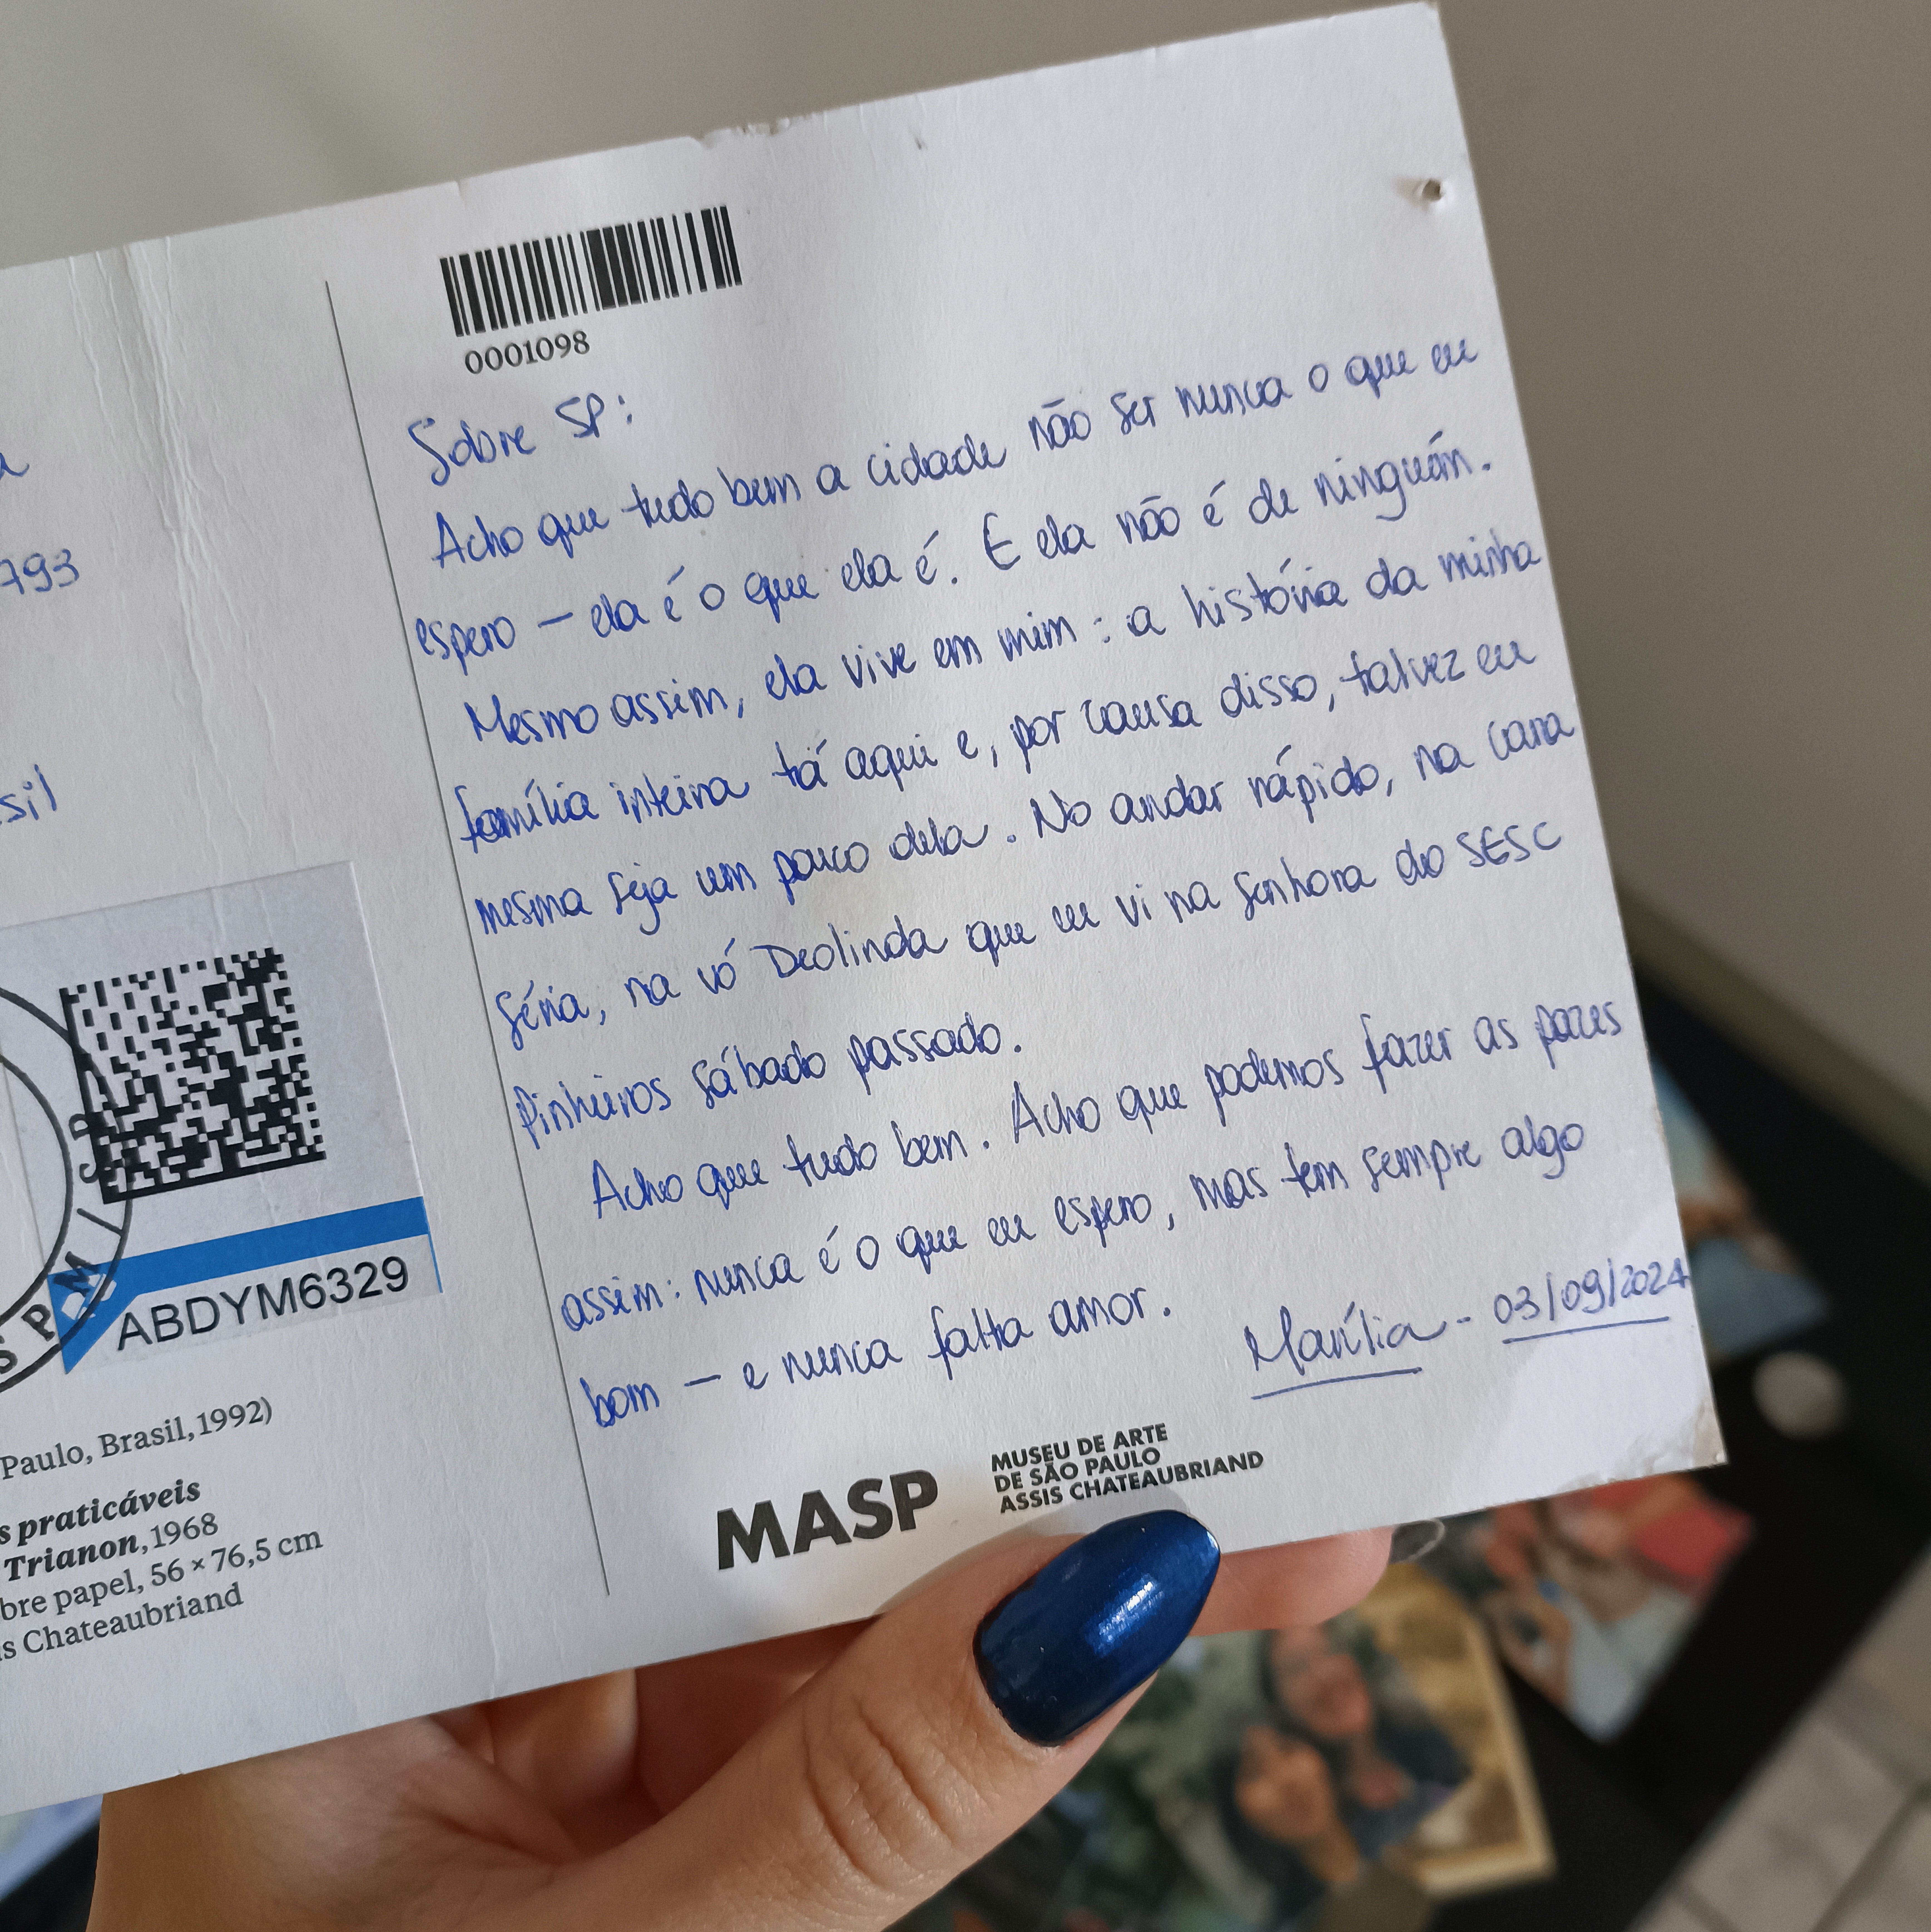 793
sil
ABDYM6329
SPM
Paulo, Brasil, 1992)
s praticáveis
Trianon, 1968
bre papel, 56 × 76,5 cm
is Chateaubriand
0001098
Sobre SP:
Acho que tudo bem a cidade não ser nunca o que eu
espero — ela é o que ela é. E ela não é de ninguém.
Mesmo assim, ela vive em mim: a história da minha
família inteira tá aqui e, por causa disso, talvez eu
mesma seja um pouco dela. No andar rápido, na cara
séria, na vó Deolinda que eu vi na senhora do SESC
Pinheiros sábado passado.
Acho que tudo bem. Acho que podemos fazer as pazes
assim: nunca é o que eu espero, mas tem sempre algo
bom — e nunca falta amor.
Marília - 03/09/2024
MASP
MUSEU DE ARTE
DE SÃO PAULO
ASSIS CHATEAUBRIAND